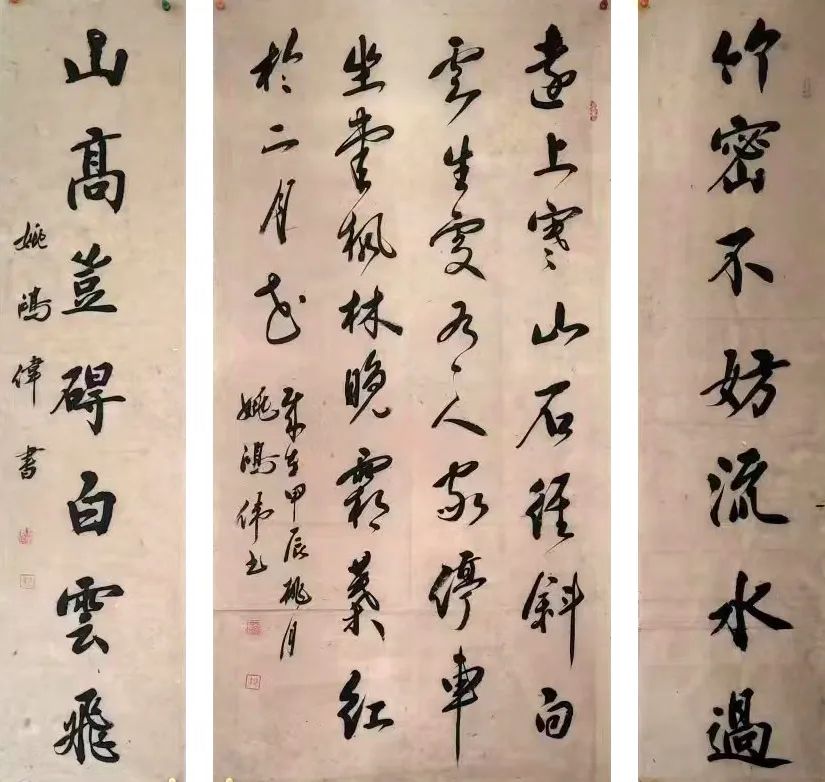 竹密不妨流水過
遠上寒山石徑斜白
雲生處有人家停車
坐愛楓林晚霜葉紅
於二月花
歲在甲辰桃月
姚鴻偉書
山髙豈礙白雲飛
姚鴻偉書